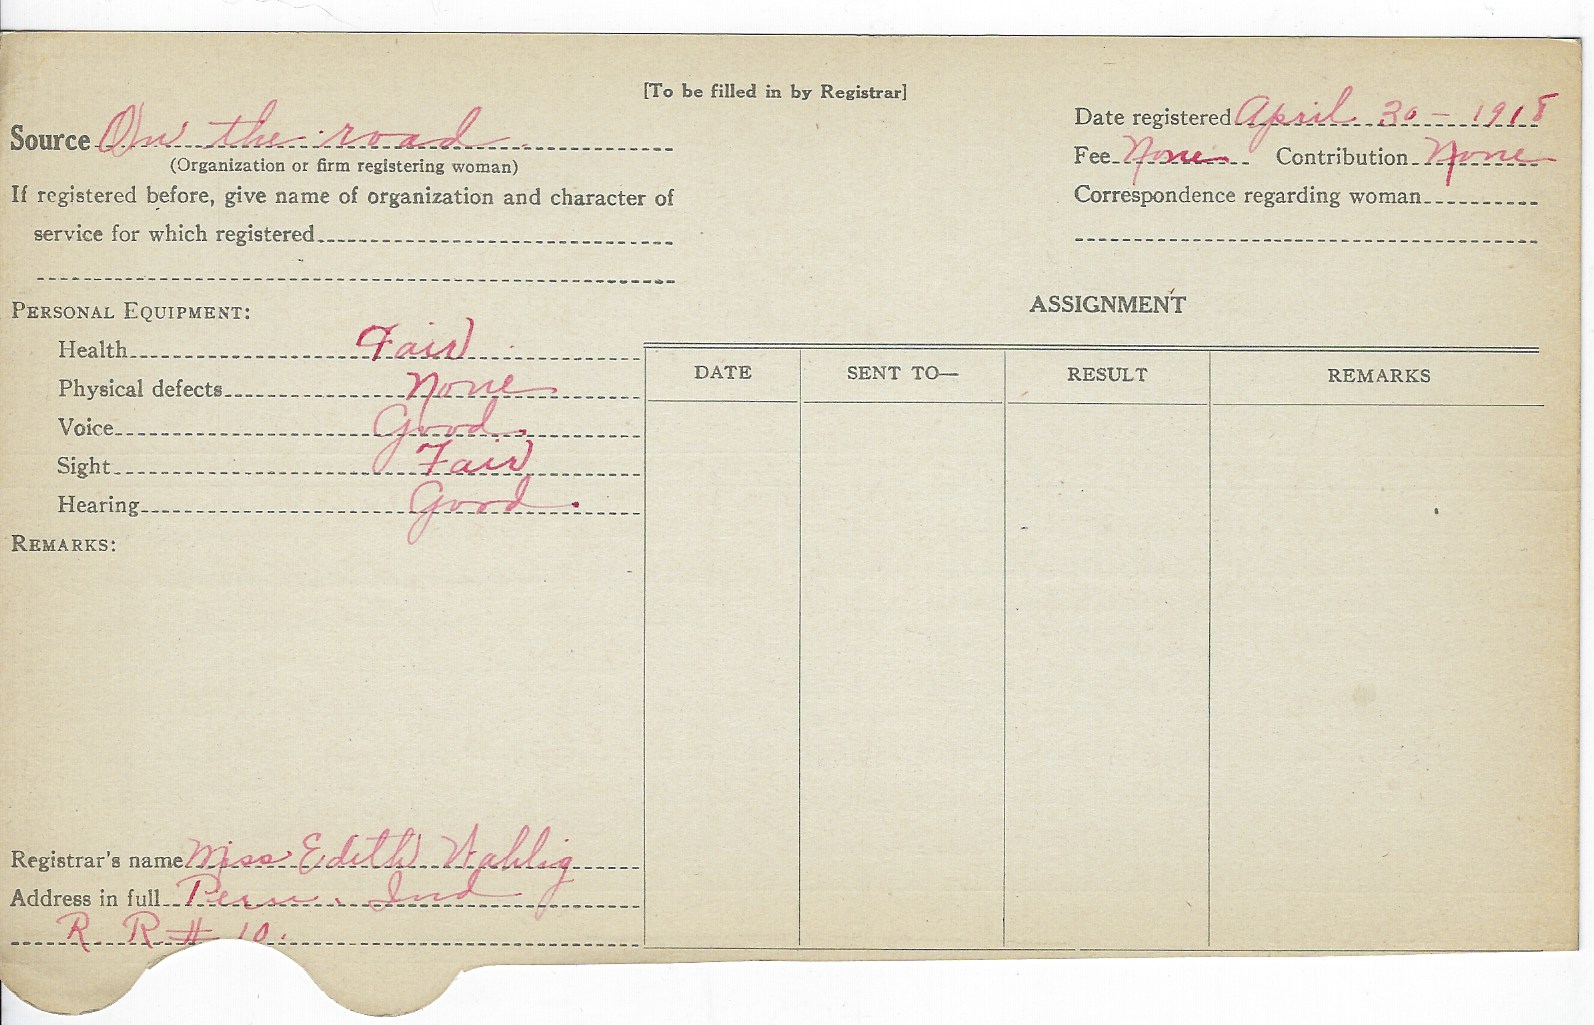 [To be filled in by Registrar]
Source On the road
(Organization or firm registering woman)
If registered before, give name of organization and character of
service for which registered
Date registered April 30 - 1918
Fee None Contribution None
Correspondence regarding woman
PERSONAL EQUIPMENT:
Health Fair
Physical defects None
Voice Good
Sight Fair
Hearing Good.
REMARKS:
Registrar's name Miss Edith Wahlig
Address in full Peru. Ind
R R # 10.
ASSIGNMENT
DATE SENT TO— RESULT REMARKS